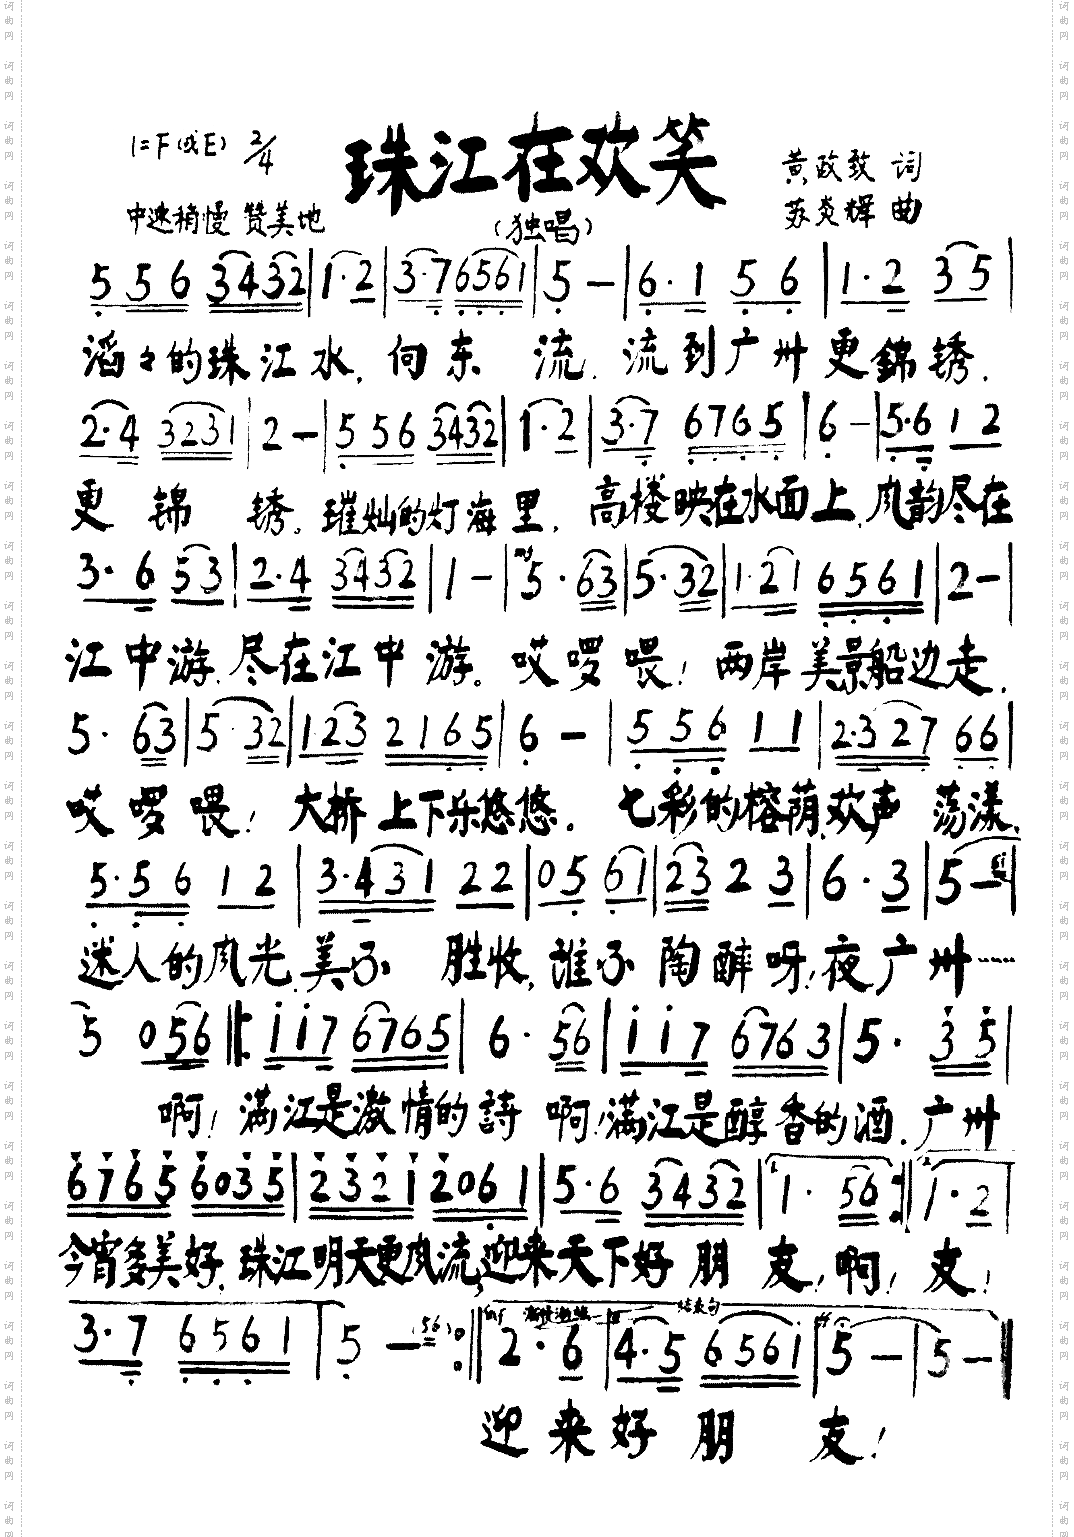 珠江在欢笑
(独唱)
1=F(或E) 2/4
中速稍慢 赞美地
黄政致 词
苏炎辉 曲
5 5 6 3 4 3 2 | 1 · 2 | 3 · 7 6 5 6 1 | 5 — | 6 · 1 5 6 | 1 · 2 3 5 |
滔々的珠江水，向东流，流到广州更錦锈，
2 · 4 3 2 3 1 | 2 — | 5 5 6 3 4 3 2 | 1 · 2 | 3 · 7 6 7 6 5 | 6 — | 5 · 6 1 2
更锦锈。璀灿的灯海里，高楼映在水面上，风韵尽在
3 · 6 5 3 | 2 · 4 3 4 3 2 | 1 — | mf 5 · 6 3 | 5 · 3 2 | 1 · 2 1 6 5 6 1 | 2 — |
江中游，尽在江中游。哎啰喂！两岸美景船边走，
5 · 6 3 | 5 · 3 2 | 1 · 2 3 2 1 6 5 | 6 — | 5 5 6 1 1 | 2 · 3 2 7 6 6 |
哎啰喂！大桥上下乐悠悠。七彩的榕荫，欢声荡漾，
5 · 5 6 1 2 | 3 · 4 3 1 2 2 | 0 5 6 1 | 2 3 2 3 | 6 · 3 | 5 — |
迷人的风光美不胜收，谁不陶醉呀！夜广州……
5 0 5 6 ‖: 1 1 7 6 7 6 5 | 6 · 5 6 | 1 1 7 6 7 6 3 | 5 · 3 5 |
啊！满江是激情的詩 啊！满江是醇香的酒，广州
6 7 6 5 6 0 3 5 | 2 3 2 1 2 0 6 1 | 5 · 6 3 4 3 2 | 1. 1 · 5 6 :‖ 2. 1 · 2 |
今宵多美好，珠江明天更风流，迎来天下好朋友！啊！友！
3 · 7 6 5 6 1 | 5 — (5 6) :‖ mf 结束句 2 · 6 | 4 · 5 6 5 6 1 | ff 5 — | 5 — ‖
迎来好朋友！
词曲网